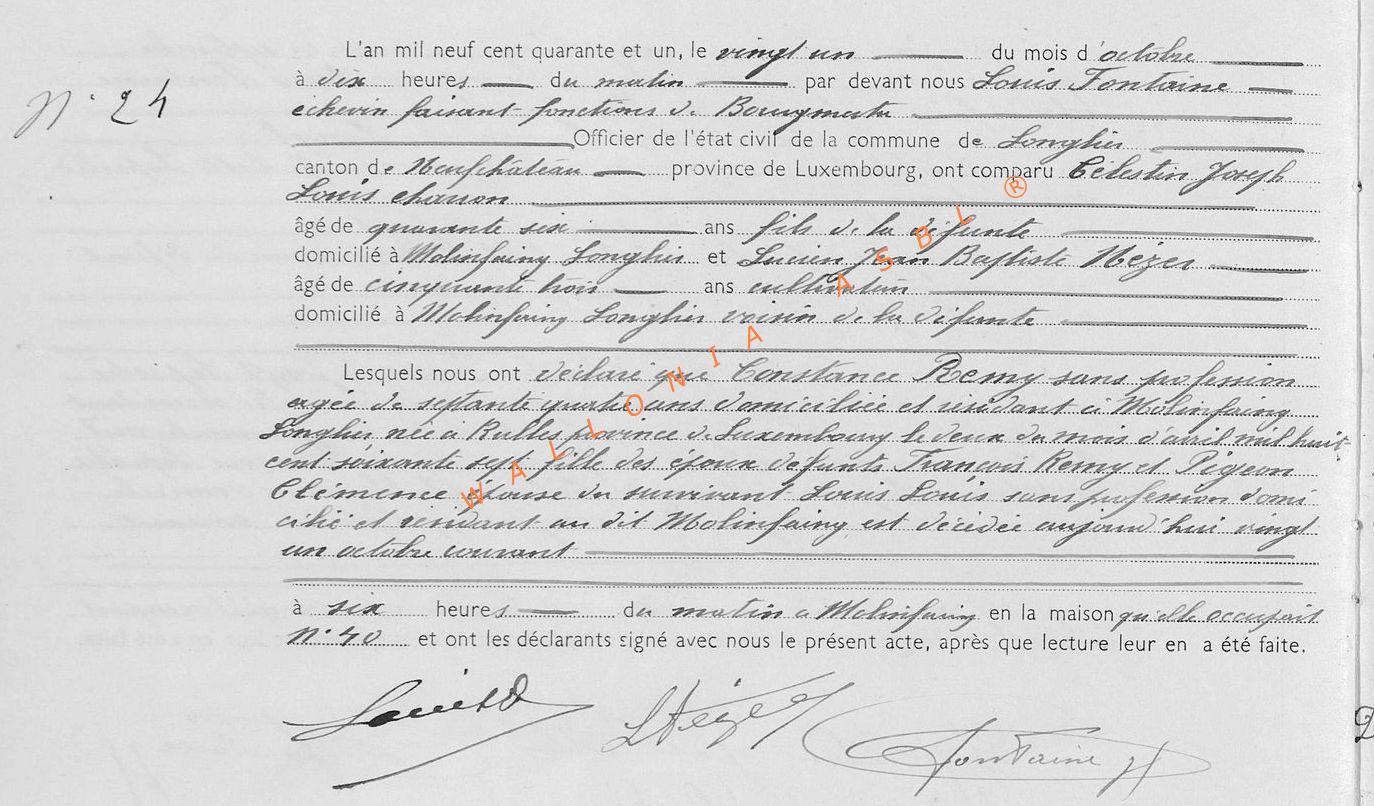 L'an mil neuf cent quarante et un, le vingt un du mois d'octobre
à dix heures du matin par devant nous Louis Fontaine
N° 24
echevin faisant fonctions de Bourgmestre
Officier de l'état civil de la commune de Longlier
canton de Neufchâteau province de Luxembourg, ont comparu Célestin Joseph
Louis
âgé de quarante six ans fils de la défunte
domicilié à Molinfaing Longlier et Lucien Jean Baptiste Hézer
âgé de cinquante trois ans cultivateur
domicilié à Molinfaing Longlier voisin de la défunte
Lesquels nous ont déclaré que Constance Remy sans profession
agée de septante quatre ans domiciliée et résidant à Molinfaing
Longlier née à Rulles province de Luxembourg le deux du mois d'avril mil huit
cent soixante sept fille des époux défunts François Remy et Pigeon
Clémence épouse du survivant Louis Louis sans profession domi
cilié et résidant au dit Molinfaing est décédée aujourd'hui vingt
un octobre courant
à six heures du matin a Molinfaing en la maison qu'elle occupait
N° 40 et ont les déclarants signé avec nous le présent acte, après que lecture leur en a été faite.
Louis L Hézer Fontaine
WALLONIA ASBL ®